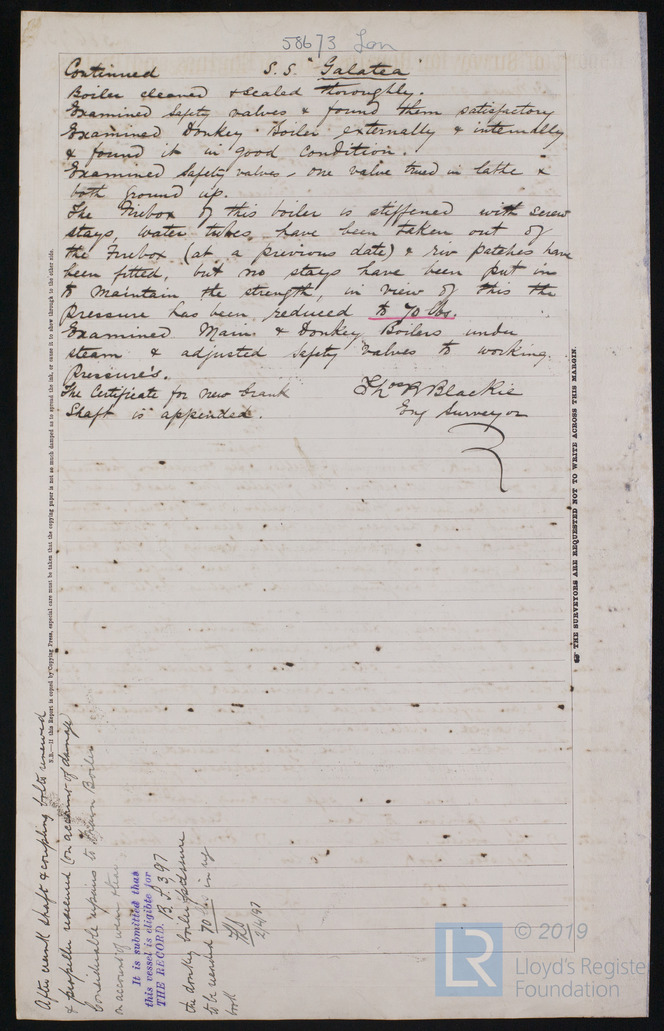 58673 Lon
Continued S.S. "Galatea"
Boiler cleaned & scaled thoroughly.
Examined Safety valves & found them satisfactory
Examined Donkey Boiler externally & internally
& found it in good condition.
Examined Safety valves – one valve trued in lathe &
both ground up.
The Firebox of this boiler is stiffened with screw
stays, water tubes have been taken out of
the Firebox (at a previous date) & riv patches have
been fitted, but no stays have been put in
to maintain the strength, in view of this the
pressure has been reduced to 70 lbs.
Examined Main & Donkey Boilers under
steam & adjusted Safety Valves to working
Pressure's.
The Certificate for new Crank
Shaft is appended.
Thos R Blackie
Eng Surveyor
N.B.—If this Report is copied by Copying Press, especial care must be taken that the copying paper is not so much damped as to spread the ink, or cause it to show through to the other side.
THE SURVEYORS ARE REQUESTED NOT TO WRITE ACROSS THIS MARGIN.
After crank shaft & coupling bolts renewed
& propeller renewed (on account of damage)
Considerable repairs to Main Boiler
on account of wear & tear
It is submitted that
this vessel is eligible for
THE RECORD. B.S. 3,97
the donkey boiler pressure
to be recorded 70 lbs. in reg
book
2/4/97
LR
© 2019
Lloyd's Register
Foundation